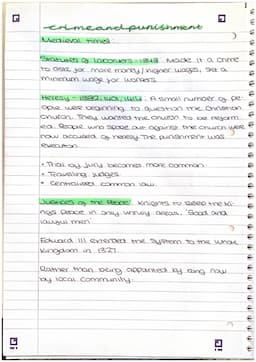 crimeandpunishment
Medieval times
Statutes of Labourers - 1349 Made it a crime
to ask for more money/higher wages, set a
minimum wage for workers.
Heresy - 1382, 1401, 1414. A small number of pe-
ople were beginning to question the Christian
church. They wanted the church to be reform-
ed. People who spoke out against the church were
now accused of heresy. The punishment was
execution.
• Trial by jury becomes more common.
• Traveling judges.
• Centralised common law.
Justices of the Peace: knights to keep the ki-
ngs peace in only unruly areas. 'Good and
lawful men'
Edward III extended the system to the whole
kingdom in 1327.
Rather than being appointed by king now
by local community.